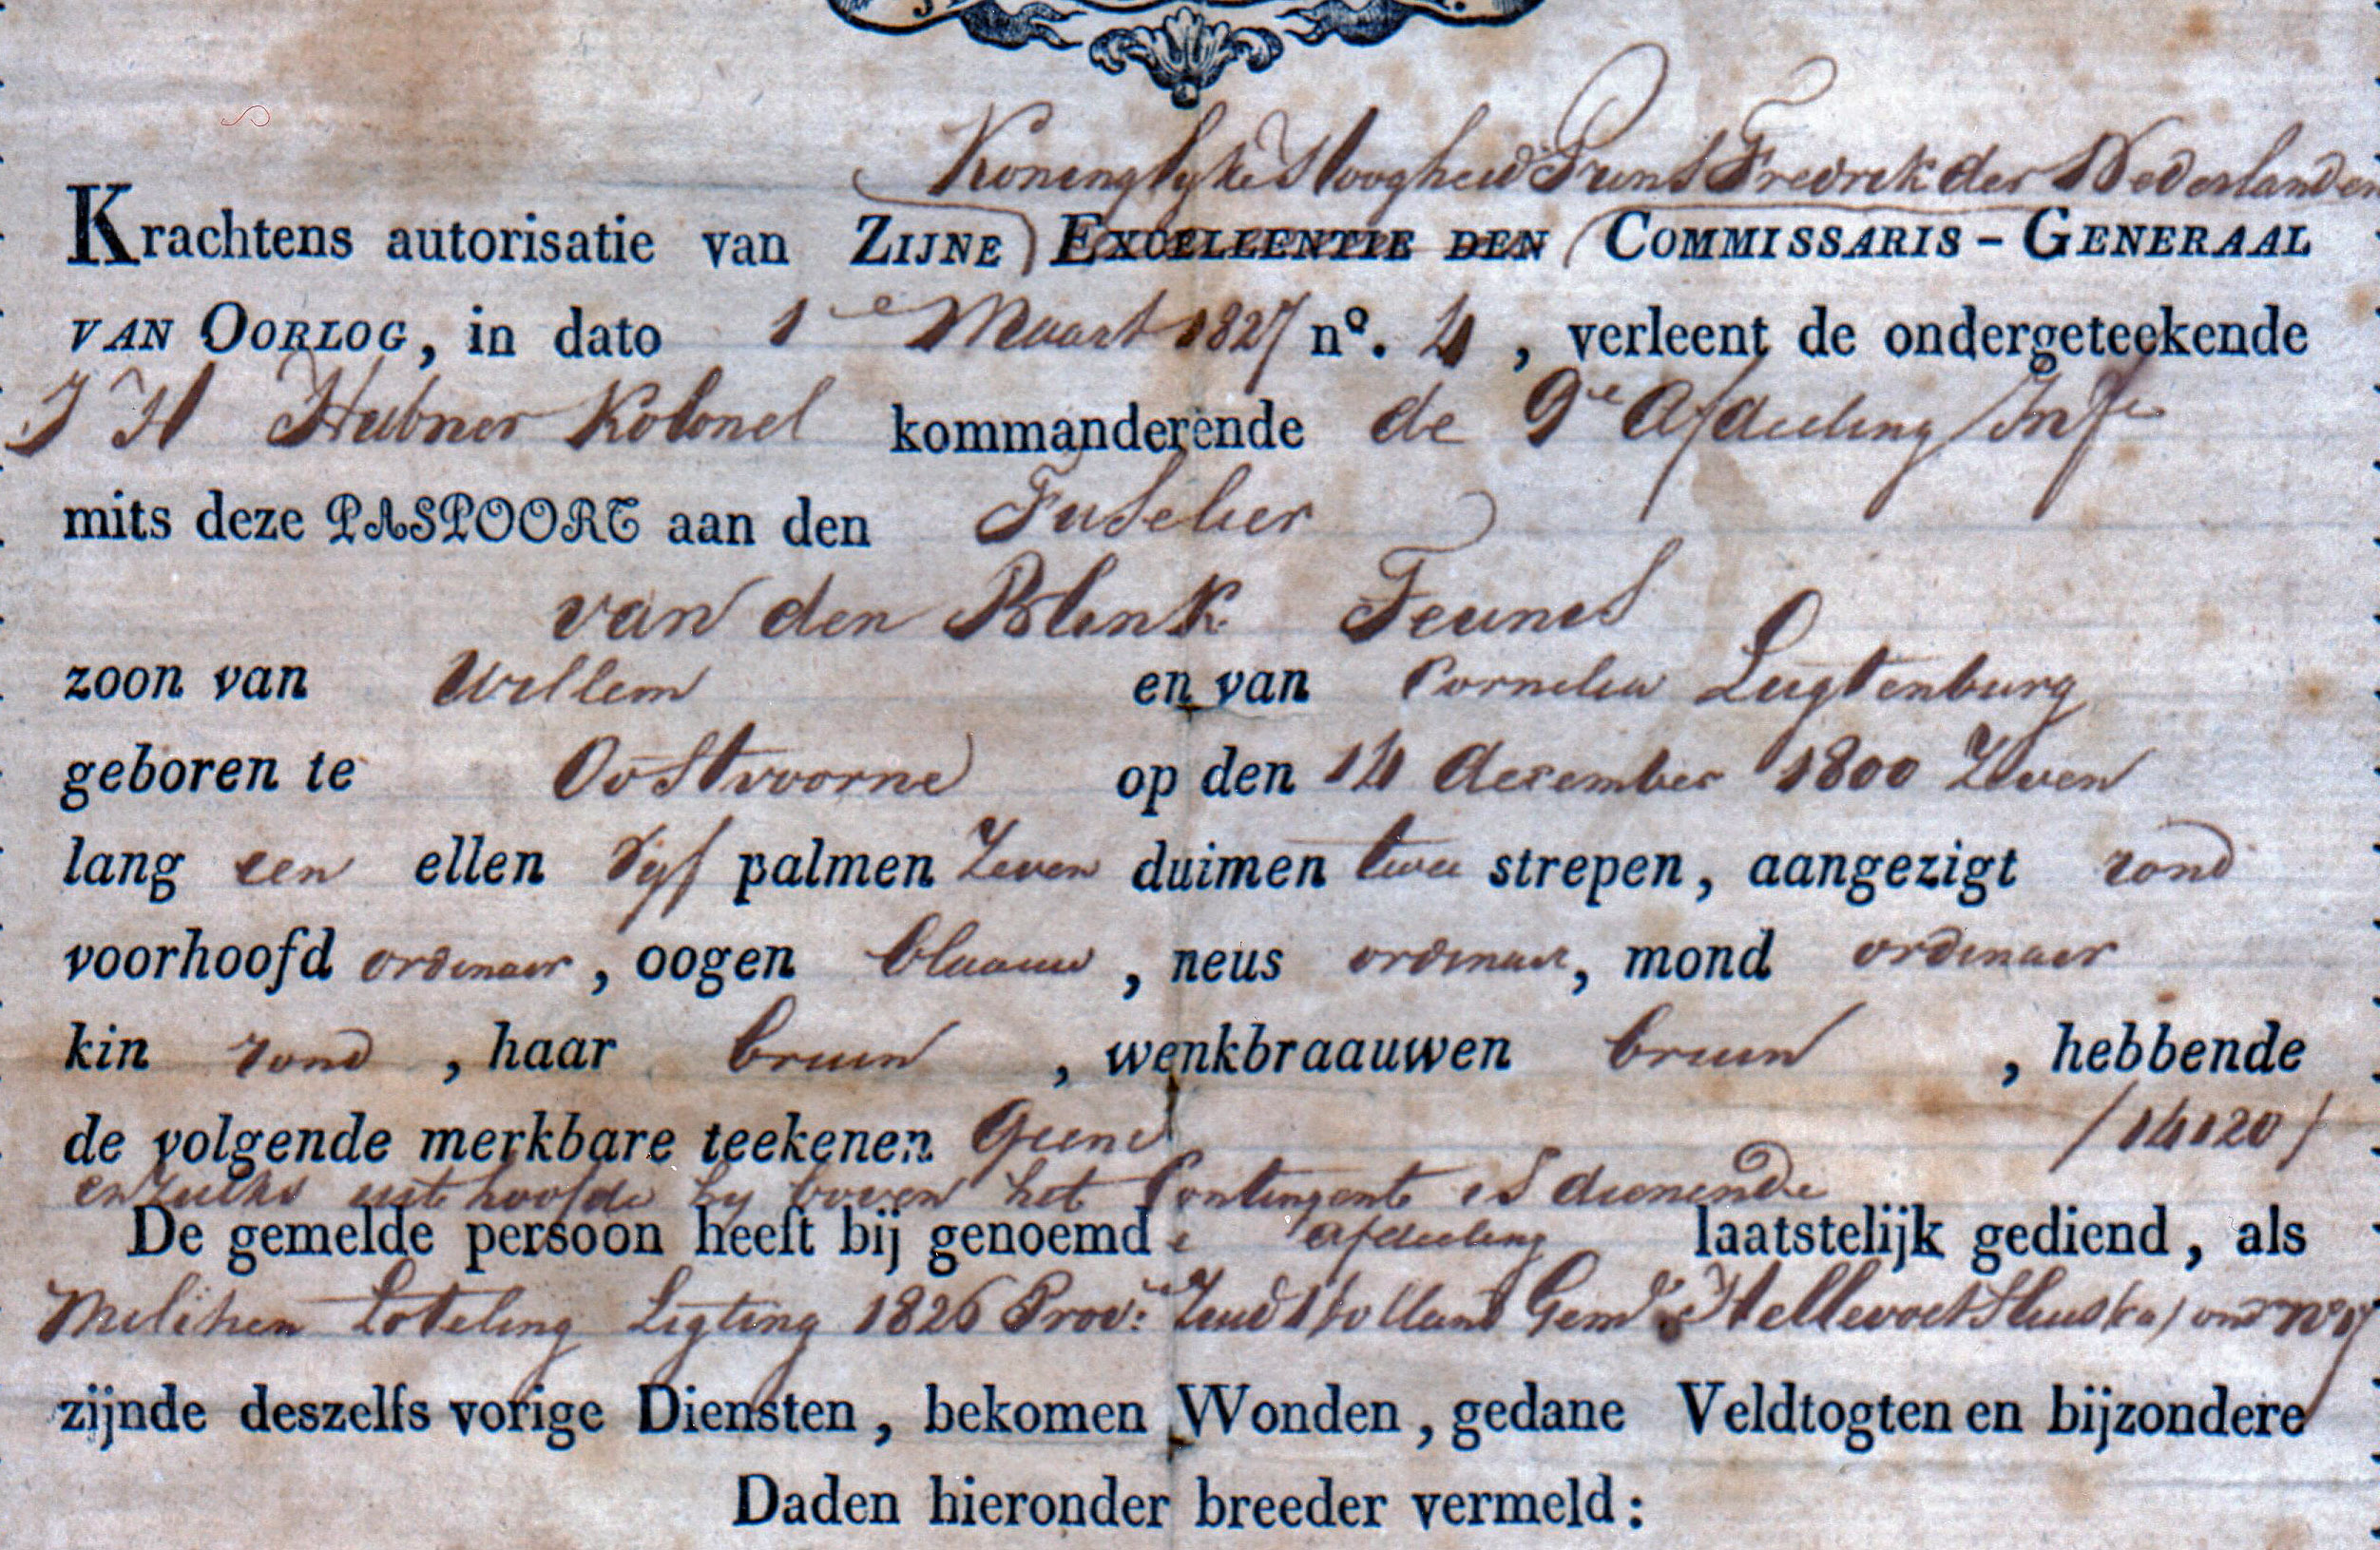 Koninglyke Hoogheid Prins Fredrik der Nederlanden
Krachtens autorisatie van ZIJNE EXCELLENTIE DEN COMMISSARIS-GENERAAL
VAN OORLOG, in dato 1e Maart 1827 no. 4, verleent de ondergeteekende
J H Hubner Kolonel kommanderende de 9e Afdeeling Infie
mits deze PASPOORT aan den Fuselier
van den Blink Teunis
zoon van Willem en van Cornelia Lugtenburg
geboren te Oostvoorne op den 14 december 1800 Zeven
lang een ellen vyf palmen Zeven duimen twee strepen, aangezigt rond
voorhoofd ordinair, oogen blaauw, neus ordinair, mond ordinair
kin rond, haar bruin, wenkbraauwen bruin, hebbende
de volgende merkbare teekenen Geene /14120/
en zulks uit hoofde hy boven het Contingent is dienende
De gemelde persoon heeft bij genoemde afdeeling laatstelijk gediend, als
Milicien Loteling Ligting 1826 Prov: Zuid Holland Gemte Hellevoetsluis
zijnde deszelfs vorige Diensten, bekomen Wonden, gedane Veldtogten en bijzondere
Daden hieronder breeder vermeld: